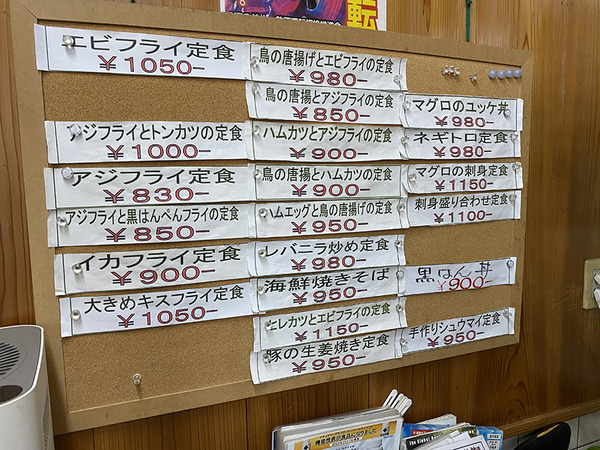 転
エビフライ定食
¥1050-
アジフライとトンカツの定食
¥1000-
アジフライ定食
¥830-
アジフライと黒はんぺんフライの定食
¥850-
イカフライ定食
¥900-
大きめキスフライ定食
¥1050-
鳥の唐揚げとエビフライの定食
¥980-
鳥の唐揚とアジフライの定食
¥850-
ハムカツとアジフライの定食
¥900-
鳥の唐揚とハムカツの定食
¥900-
ハムエッグと鳥の唐揚の定食
¥950-
レバニラ炒め定食
¥980-
海鮮焼きそば
¥950-
ヒレカツとエビフライの定食
¥1150-
豚の生姜焼き定食
¥950-
マグロのユッケ丼
¥980-
ネギトロ定食
¥980-
マグロの刺身定食
¥1150-
刺身盛り合わせ定食
¥1100-
黒はん丼
¥900-
手作りシュウマイ定食
¥950-
機能性表示食品になりました